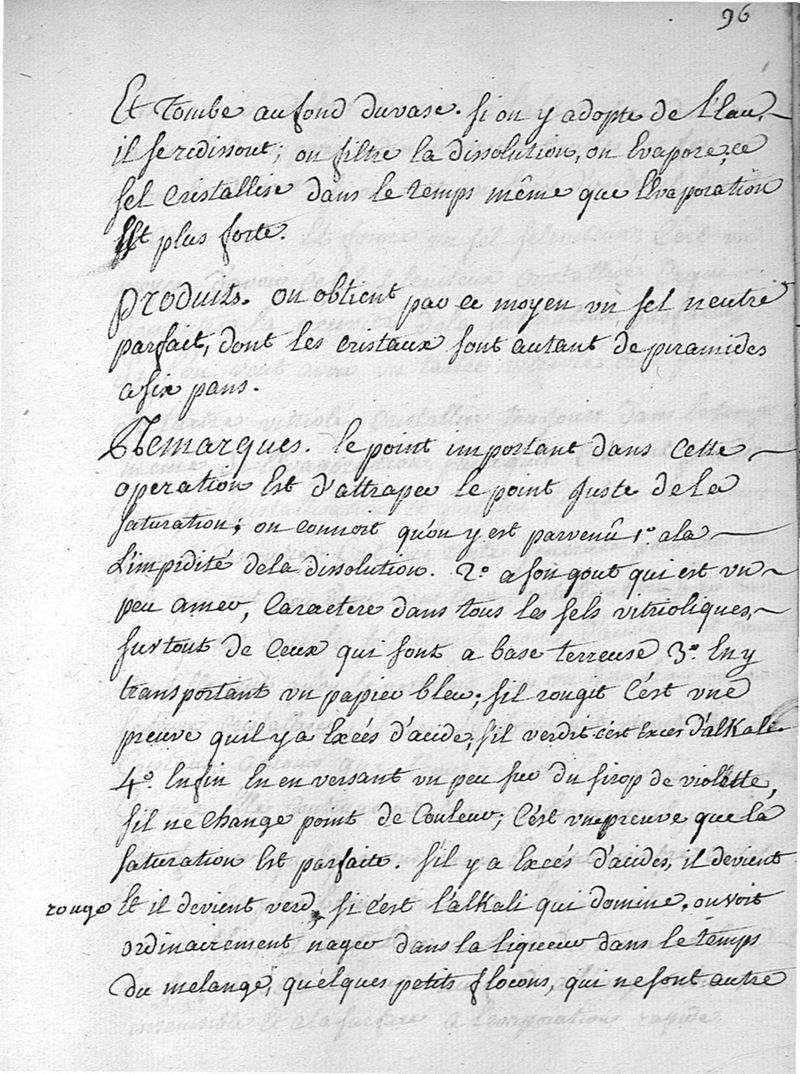 96
Et tombe au fond du vase. si on y adopte de l'Eau,
il se redissout; on filtre la dissolution, on Evapore, ce
sel cristallise dans le temps même que l'Evaporation
Est plus forte.
produits. on obtient par ce moyen un sel neutre
parfait, dont les cristaux sont autant de piramides
a six pans.
Remarques. le point important dans cette
operation Est d'attraper le point juste de la
saturation; on connoit qu'on y est parvenû 1.º a la
Limpidité de la dissolution. 2.º a son gout qui est un
peu amer, Caractere dans tous les sels vitrioliques,
surtout de ceux qui sont a base terreuse 3.º En y
transportant un papier bleu; s'il rougit C'est une
preuve quil y a Excés d'acide, s'il verdit c'est Excés d'alkali.
4.º Enfin En en versant un peu sur du sirop de violette,
s'il ne change point de Couleur; C'est une preuve que la
saturation Est parfaite. s'il y a Excés d'acides, il devient
rouge Et il devient verd, si c'est l'alkali qui domine, on voit
ordinairement nager dans la liqueur dans le temps
du melange, quelques petits flocons, qui ne sont autre